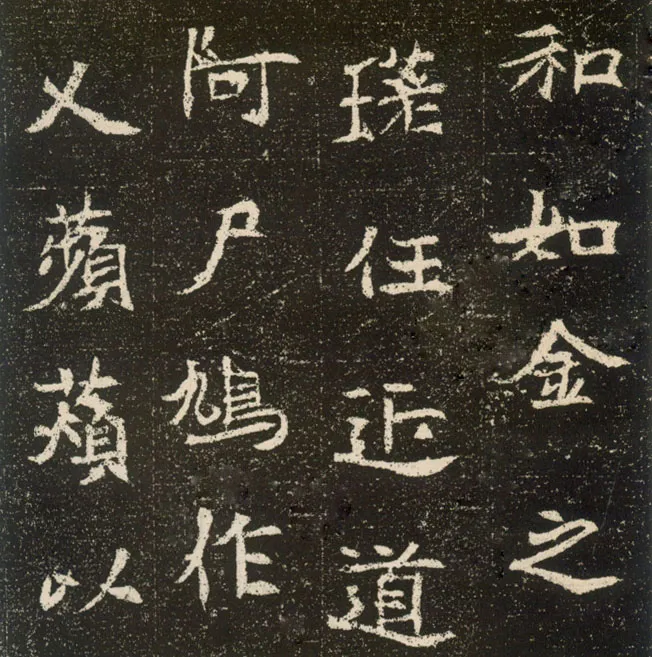 和如金之
瑛任近道
阿尸鳩作
乂蘋蘋以